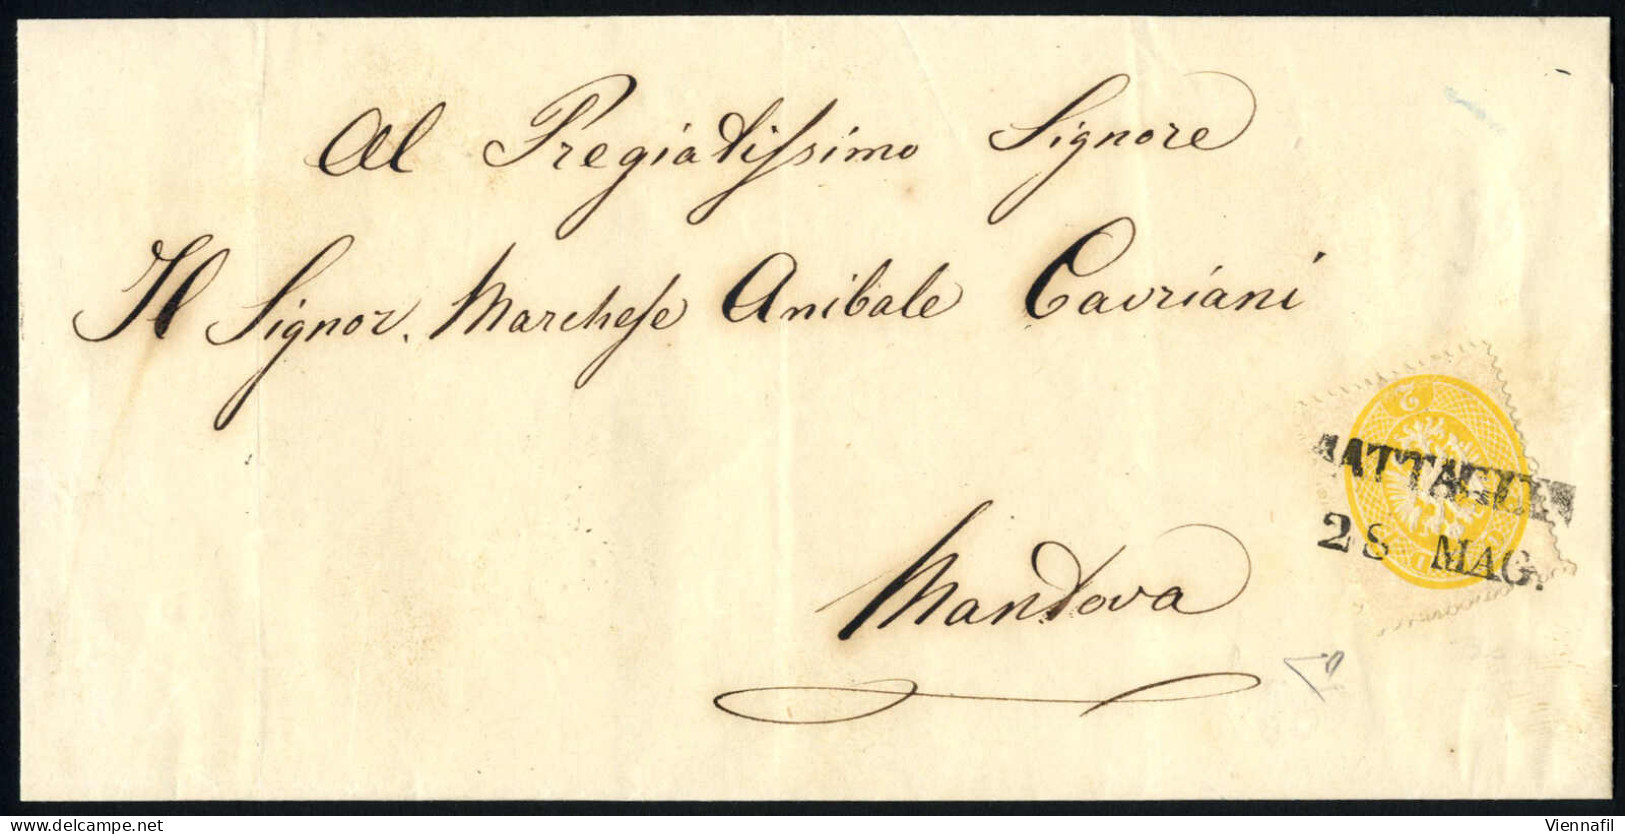 Al Pregiatissimo Signore
Il Signor. Marchese Anibale Cavriani
2
BATTAGLIA
28 MAG.
Mantova
delcampe.net
Viennafil